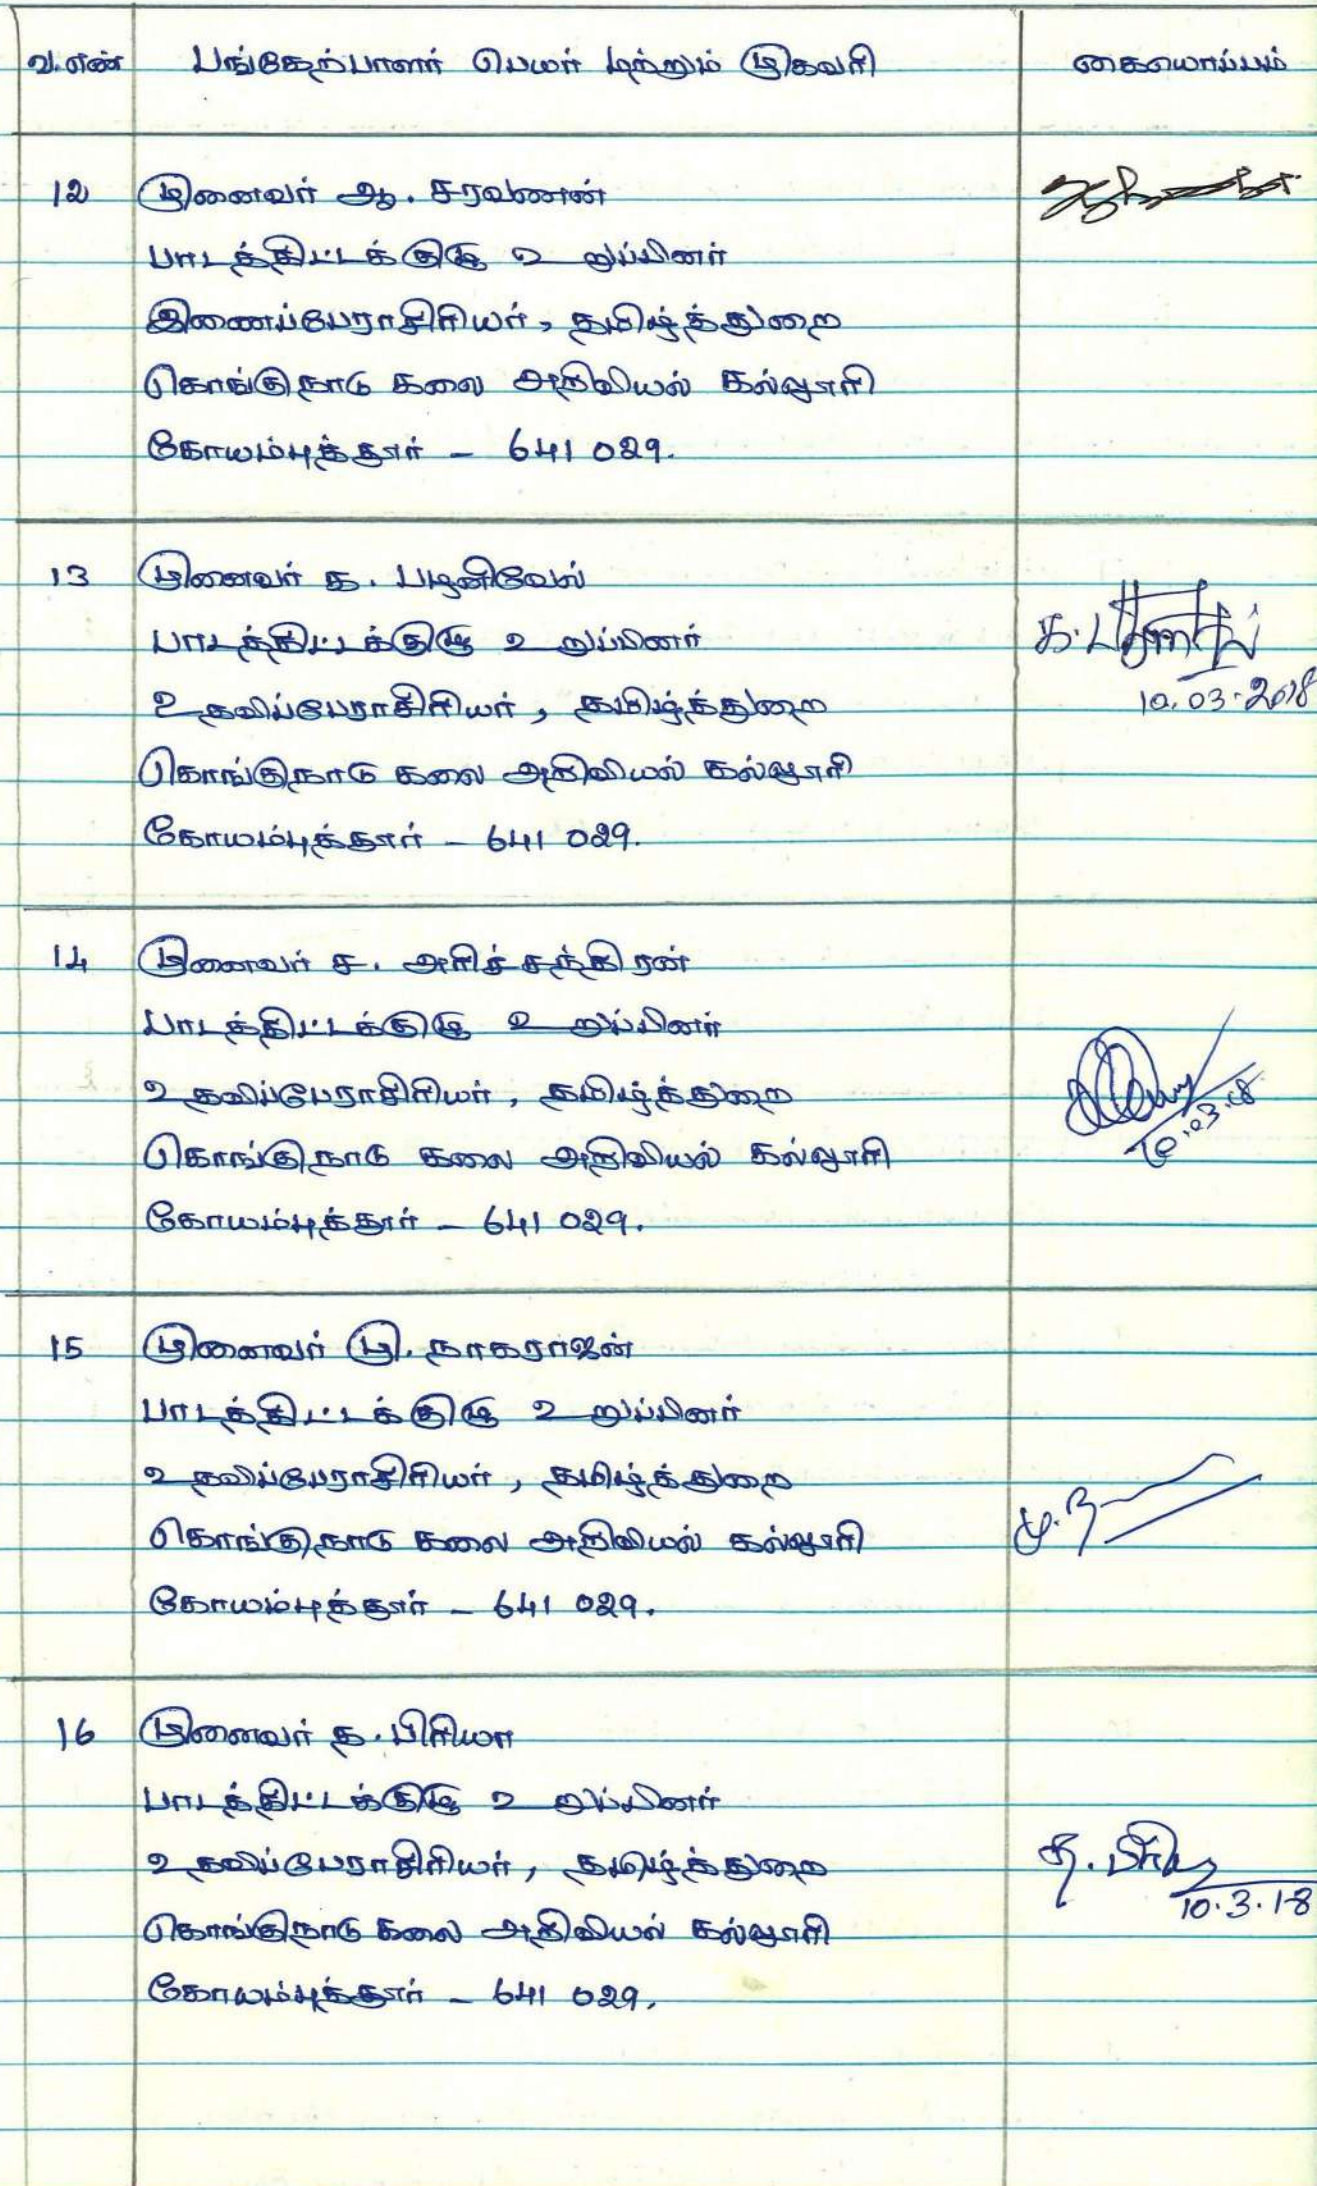 வ.எண் பங்கேற்பாளர் பெயர் மற்றும் முகவரி கையொப்பம்
12 முனைவர் ஆ. சரவணன்
பாடத்திட்டக்குழு உறுப்பினர்
இணைப்பேராசிரியர், தமிழ்த்துறை
கொங்குநாடு கலை அறிவியல் கல்லூரி
கோயம்புத்தூர் - 641 029.
13 முனைவர் க. பழனிவேல்
பாடத்திட்டக்குழு உறுப்பினர்
உதவிப்பேராசிரியர், தமிழ்த்துறை
கொங்குநாடு கலை அறிவியல் கல்லூரி
கோயம்புத்தூர் - 641 029.
க. பழனிவேல்
10.03.2018
14 முனைவர் ச. அரிச்சந்திரன்
பாடத்திட்டக்குழு உறுப்பினர்
உதவிப்பேராசிரியர், தமிழ்த்துறை
கொங்குநாடு கலை அறிவியல் கல்லூரி
கோயம்புத்தூர் - 641 029.
10.03.18
15 முனைவர் மு. நாகராஜன்
பாடத்திட்டக்குழு உறுப்பினர்
உதவிப்பேராசிரியர், தமிழ்த்துறை
கொங்குநாடு கலை அறிவியல் கல்லூரி
கோயம்புத்தூர் - 641 029.
மு. ந
16 முனைவர் த. பிரியா
பாடத்திட்டக்குழு உறுப்பினர்
உதவிப்பேராசிரியர், தமிழ்த்துறை
கொங்குநாடு கலை அறிவியல் கல்லூரி
கோயம்புத்தூர் - 641 029.
த. பிரியா
10.3.18